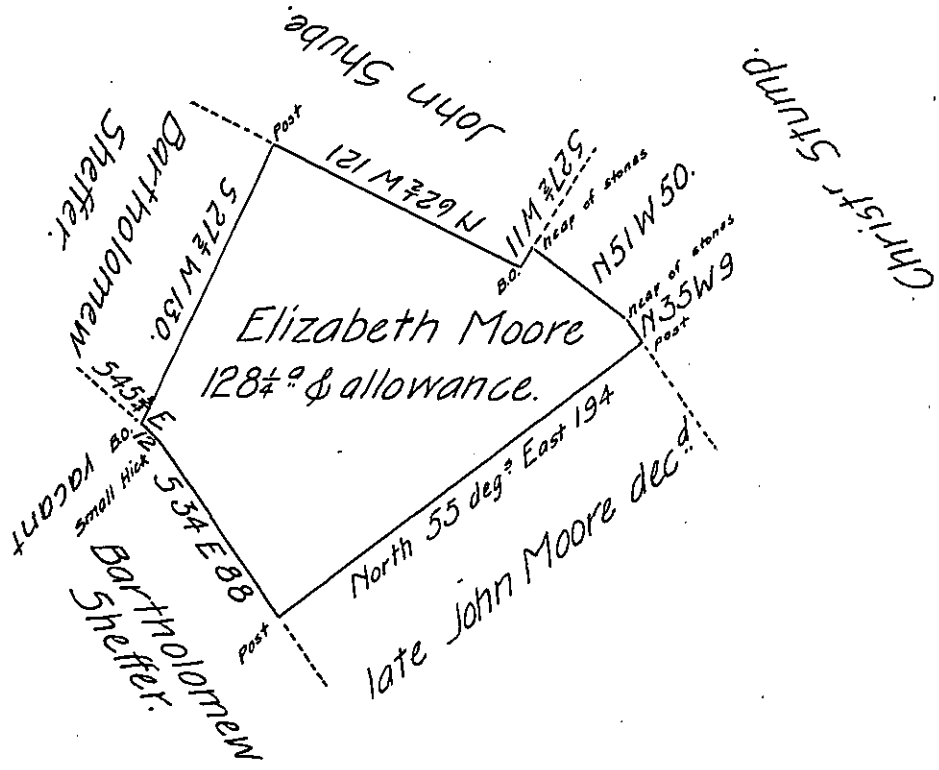 John Shube.
Christr Stump.
Bartholomew
Sheffer.
Post
N 62½ W 121
S27½ W 11
B.O.
heap of stones
N51W 50.
heap of stones
N35W9
Post
S27½ W 130.
Elizabeth Moore
128¼ a & allowance.
S45½ E
12
B.O.
Small Hick
vacant
S34E88
North 55 degs East 194
Bartholomew
Sheffer.
Post
late John Moore decd